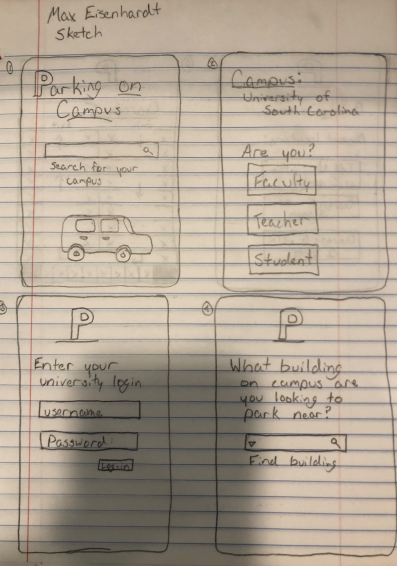 Max Eisenhardt
Sketch
1
Parking on
Campus
Search for your
campus
2
Campus:
University of
South Carolina
Are you?
Faculty
Teacher
Student
3
P
Enter your
university login
username
Password:
Login
4
P
What building
on campus are
you looking to
park near?
Find building